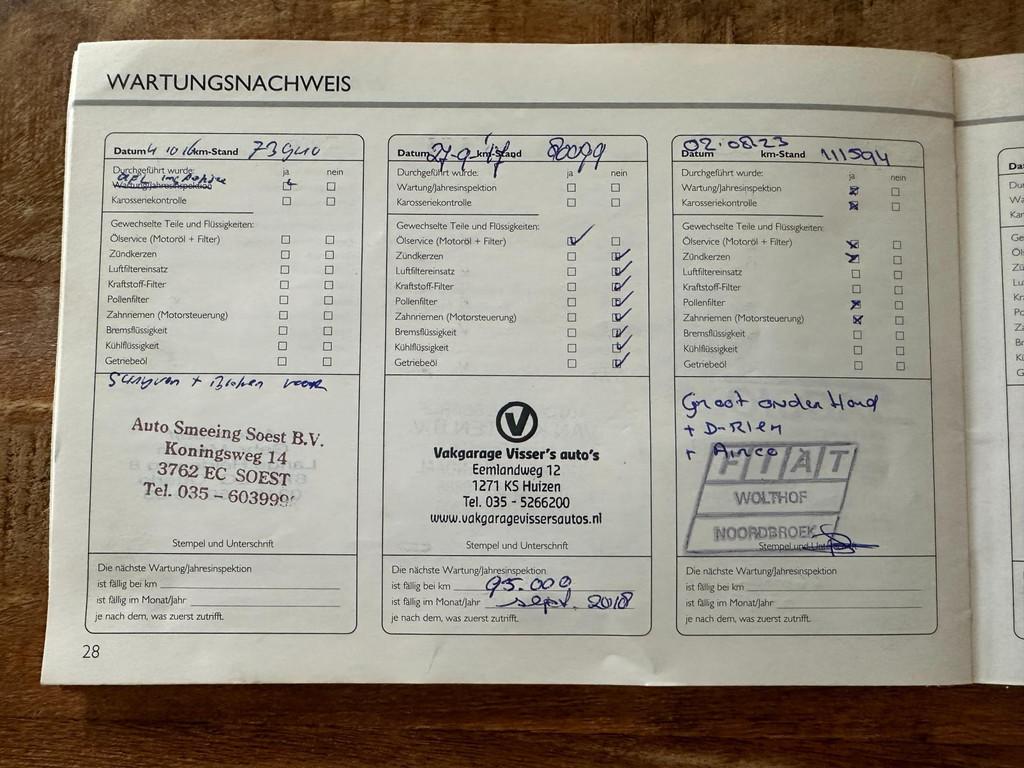 WARTUNGSNACHWEIS
Datum 4 10 16 km-Stand
Durchgeführt wurde: ja nein
Wartung/Jahresinspektion
Karosseriekontrolle
Gewechselte Teile und Flüssigkeiten:
Ölservice (Motoröl + Filter)
Zündkerzen
Luftfiltereinsatz
Kraftstoff-Filter
Pollenfilter
Zahnriemen (Motorsteuerung)
Bremsflüssigkeit
Kühlflüssigkeit
Getriebeöl
+ voor
Auto Smeeing Soest B.V.
Koningsweg 14
3762 EC SOEST
Tel. 035 - 603999
Stempel und Unterschrift
Die nächste Wartung/Jahresinspektion
ist fällig bei km
ist fällig im Monat/Jahr
je nach dem, was zuerst zutrifft.
28
Datum 27-9-17 km-Stand 80099
Durchgeführt wurde: ja nein
Wartung/Jahresinspektion
Karosseriekontrolle
Gewechselte Teile und Flüssigkeiten:
Ölservice (Motoröl + Filter)
Zündkerzen
Luftfiltereinsatz
Kraftstoff-Filter
Pollenfilter
Zahnriemen (Motorsteuerung)
Bremsflüssigkeit
Kühlflüssigkeit
Getriebeöl
V
Vakgarage Visser's auto's
Eemlandweg 12
1271 KS Huizen
Tel. 035 - 5266200
www.vakgaragevissersautos.nl
Stempel und Unterschrift
Die nächste Wartung/Jahresinspektion
ist fällig bei km 95.000
ist fällig im Monat/Jahr sept. 2018
je nach dem, was zuerst zutrifft.
02.08.23
Datum km-Stand 111594
Durchgeführt wurde: ja nein
Wartung/Jahresinspektion
Karosseriekontrolle
Gewechselte Teile und Flüssigkeiten:
Ölservice (Motoröl + Filter)
Zündkerzen
Luftfiltereinsatz
Kraftstoff-Filter
Pollenfilter
Zahnriemen (Motorsteuerung)
Bremsflüssigkeit
Kühlflüssigkeit
Getriebeöl
Groot onder Houd
+ D-Riem
+ Airco
FIAT
WOLTHOF
NOORDBROEK
Stempel und
Die nächste Wartung/Jahresinspektion
ist fällig bei km
ist fällig im Monat/Jahr
je nach dem, was zuerst zutrifft.